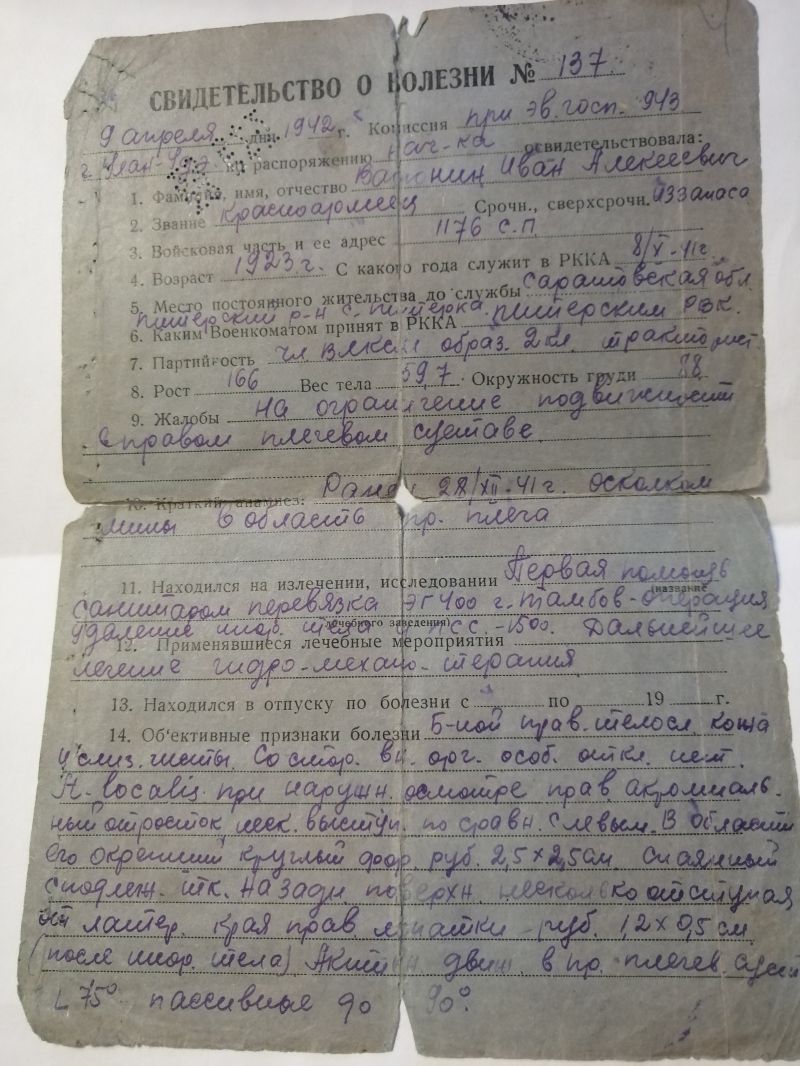 СВИДЕТЕЛЬСТВО О БОЛЕЗНИ № 137
9 апреля дня 1942 г. Комиссия при эв. госп. 943
г. Улан-Удэ по распоряжению нач-ка освидетельствовала:
1. Фамилия, имя, отчество Иван Алексеевич
2. Звание Красноармеец Срочн., сверхсрочн. из запаса
3. Войсковая часть и ее адрес 1176 с.п.
4. Возраст 1923 г. С какого года служит в РККА 8/X-41 г.
5. Место постоянного жительства до службы Саратовская обл.
питерский р-н с. питерка.
6. Каким Военкоматом принят в РККА питерским РВК.
7. Партийность чл ВЛКСМ образ. 2 кл. тракторист.
8. Рост 166 Вес тела 59,7 Окружность груди 88
9. Жалобы на ограничение подвижности
в правом плечевом суставе
10. Краткий анамнез: Ранен 28/XII-41 г. осколком
мины в область пр. плеча
11. Находился на излечении, исследовании Первая помощь
(название
санитаром перевязка ЭГ 400 г. Тамбов - операция
лечебного заведения)
удаление инор. тела ПСС - 1500. Дальнейшее
12. Применявшиеся лечебные мероприятия
лечение гидро-механо-терапия
13. Находился в отпуску по болезни с по 19 г.
14. Об'ективные признаки болезни Б-ной прав. телосл. кожа
и слиз. чисты. Со стор. вн. орг. особ. откл. нет.
при наружн. осмотре прав. акромиаль-
ный отросток неск. выступ. по сравн. с левым. В области
его окрепший круглый фор. руб. 2,5 × 2,5 см. спаянный
с подлеж. тк. На задн. поверхн. несколько отступая
от латер. края прав. лопатки - руб. 1,2 × 0,5 см
(после инор. тела) Активн. движ. в пр. плечев. суст
L 75° пассивные до 90°.